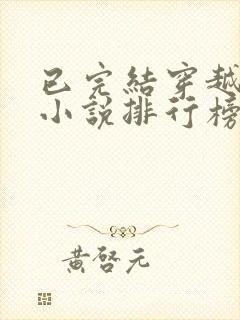 已完結穿越
小說排行榜
黃啓元